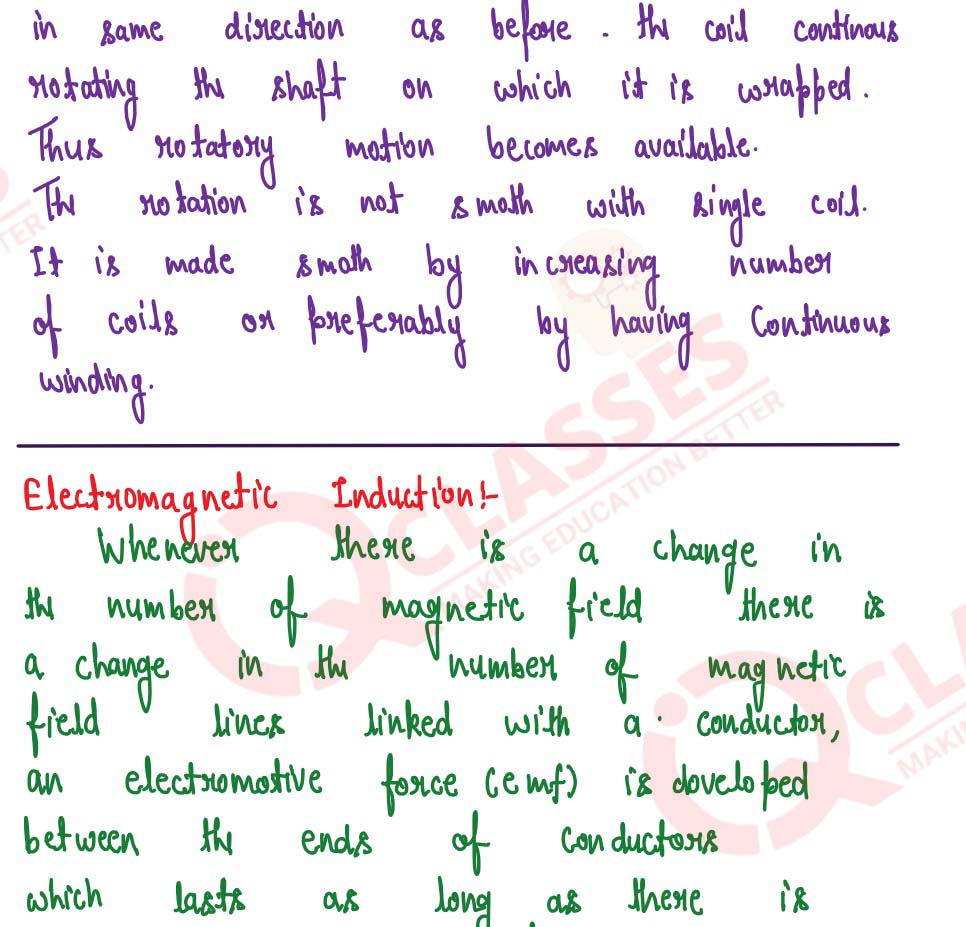 in same direction as before. the coil continous
rotating the shaft on which it is wrapped.
Thus rotatory motion becomes available.
The rotation is not smoth with single coil.
It is made smoth by increasing number
of coils or preferably by having Continuous
winding.
Electromagnetic Induction:-
Whenever there is a change in
the number of magnetic field there is
a change in the number of magnetic
field lines linked with a conductor,
an electromotive force (emf) is doveloped
between the ends of conductors
which lasts as long as there is
CLASSES
MAKING EDUCATION BETTER